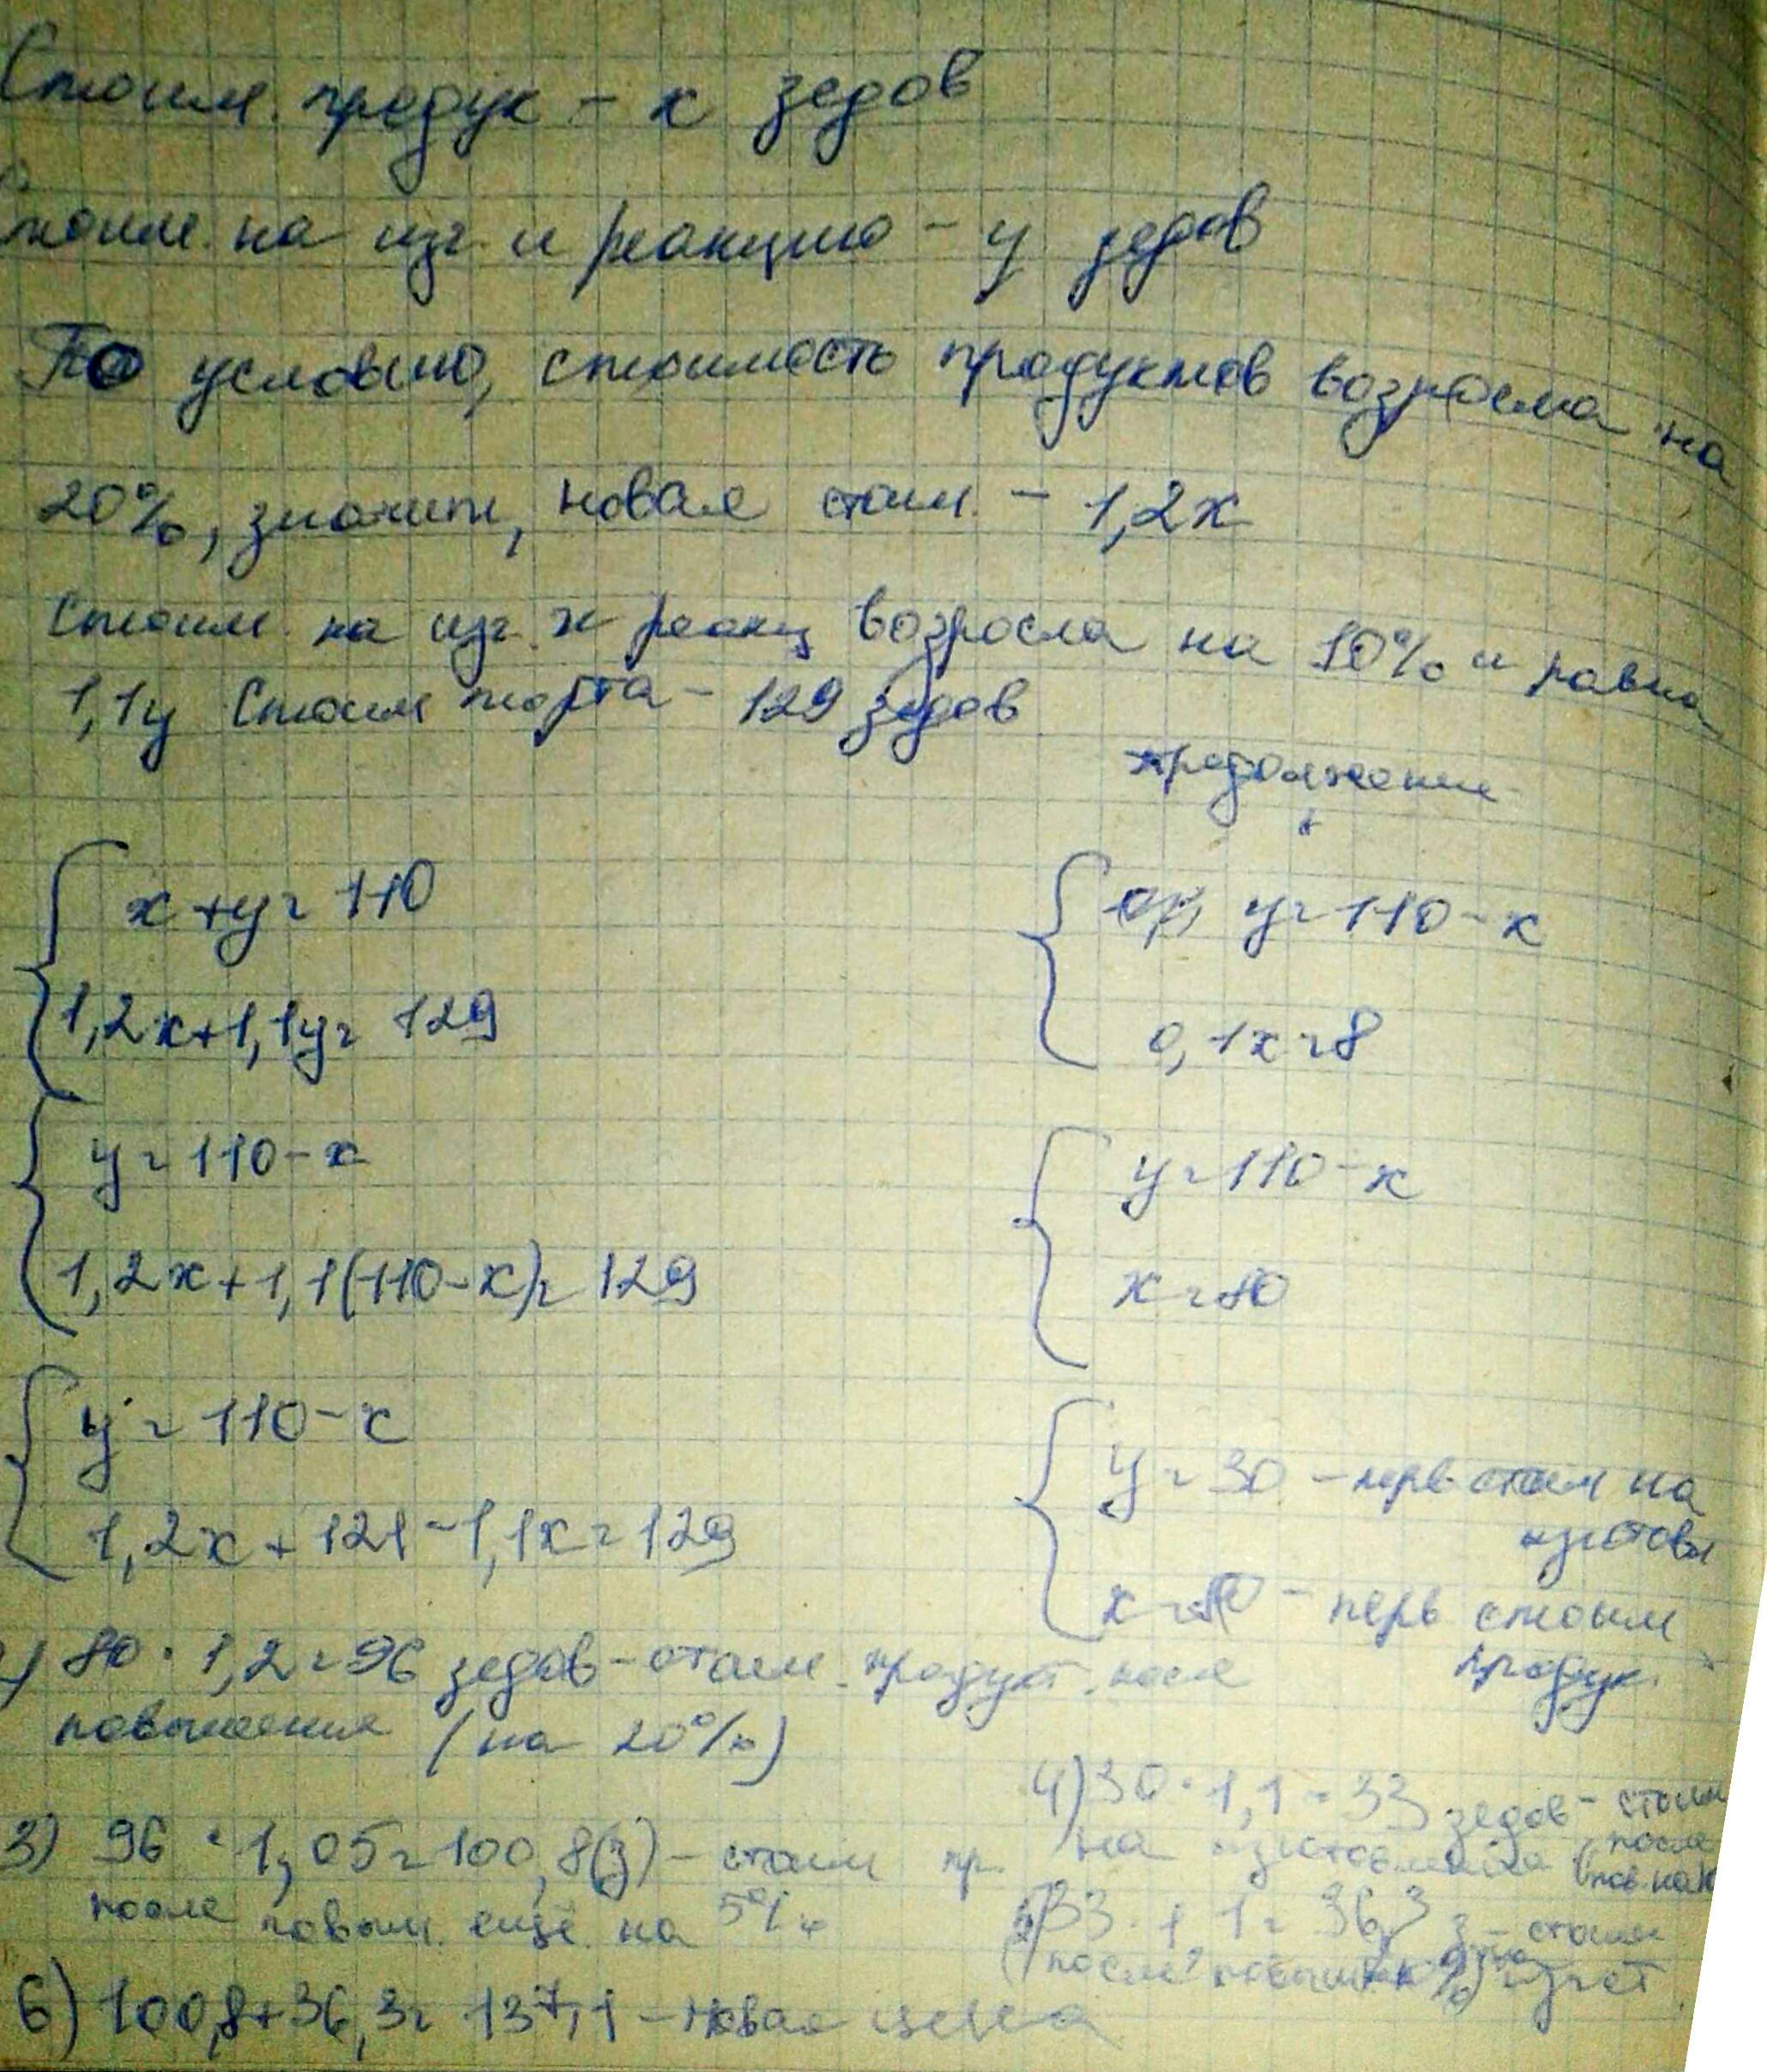 Стоим. продук - x зедов
стоим. на изг. и реакцию - y зедов
По условию, стоимость продуктов возросла на
20%, значит, новая стоим. - 1,2x
Стоим. на изг. и реакц возросла на 10% и равна
1,1y Стоим торта - 129 зедов
продолжение
x+y=110
1,2x+1,1y=129
y=110-x
1,2x+1,1(110-x)=129
y=110-x
1,2x+121-1,1x=129
y=110-x
0,1x=8
y=110-x
x=80
y=30 - перв стоим на
изготовл
x=80 - перв стоим
продук.
80·1,2=96 зедов - стоим. продукт. после
повышения (на 20%)
3) 96·1,05=100,8(з) - стоим пр.
после повыш. ещё на 5%
4) 30·1,1=33 зедов - стоим
на изготовления (после
пов. на
33·1,1=36,3 з - стоим
(после повыш изгот
6) 100,8+36,3=137,1 - новая цена